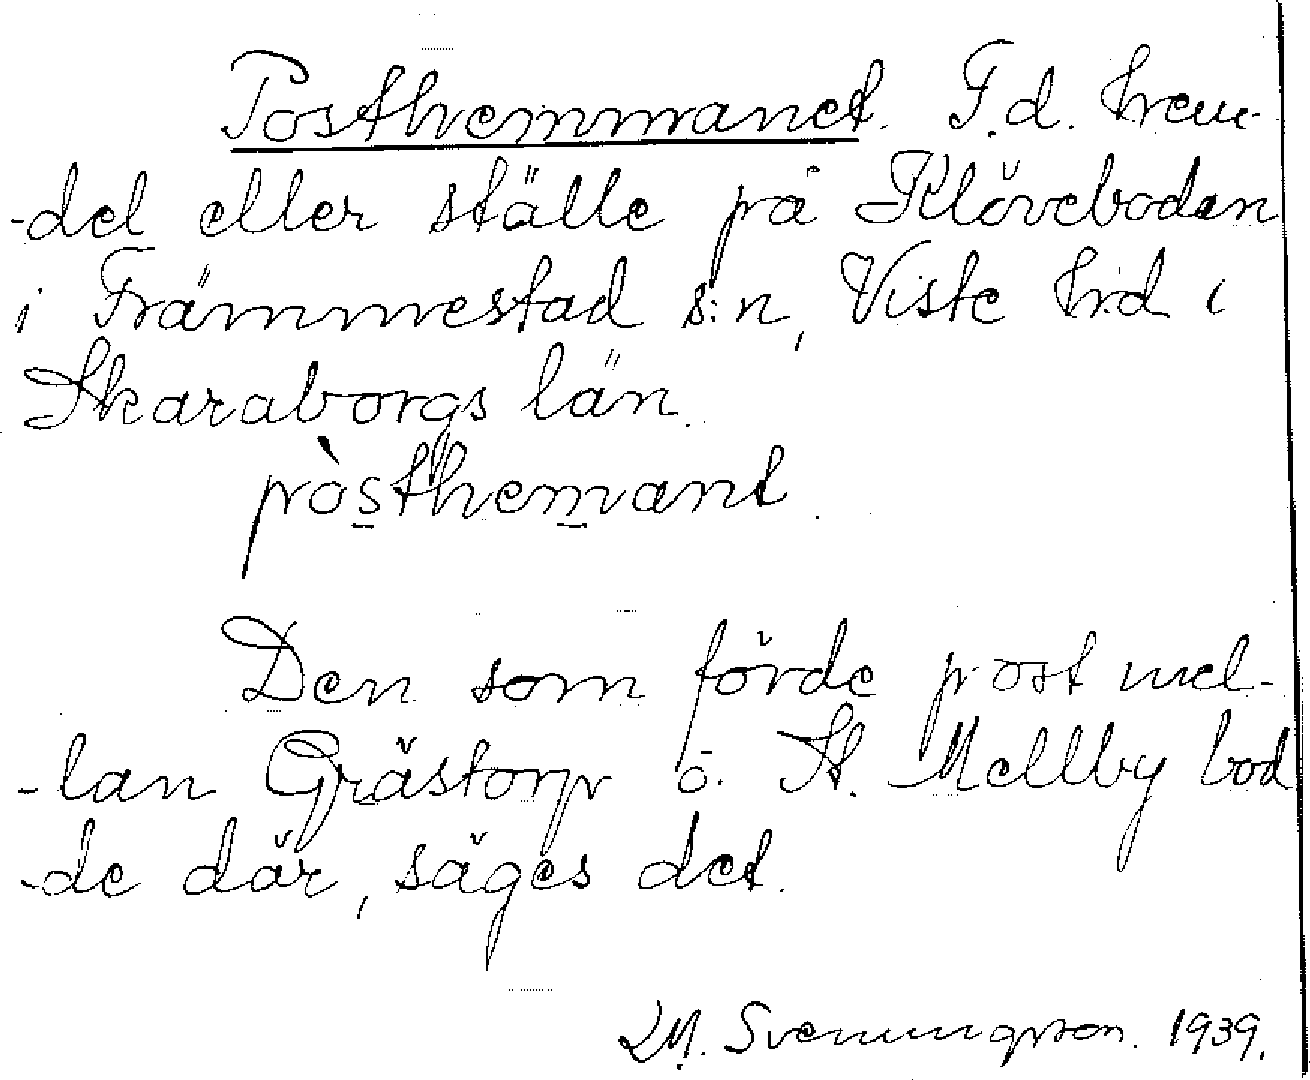 Posthemmanet. F.d. hem-
-del eller ställe på Klövebodan
i Främmestad s:n, Viste hd i
Skaraborgs län.
pòsthemant.
Den som förde post mel-
-lan Grästorp o. St. Mellby bod
-de där, säges det.
Svenungsson. 1939.